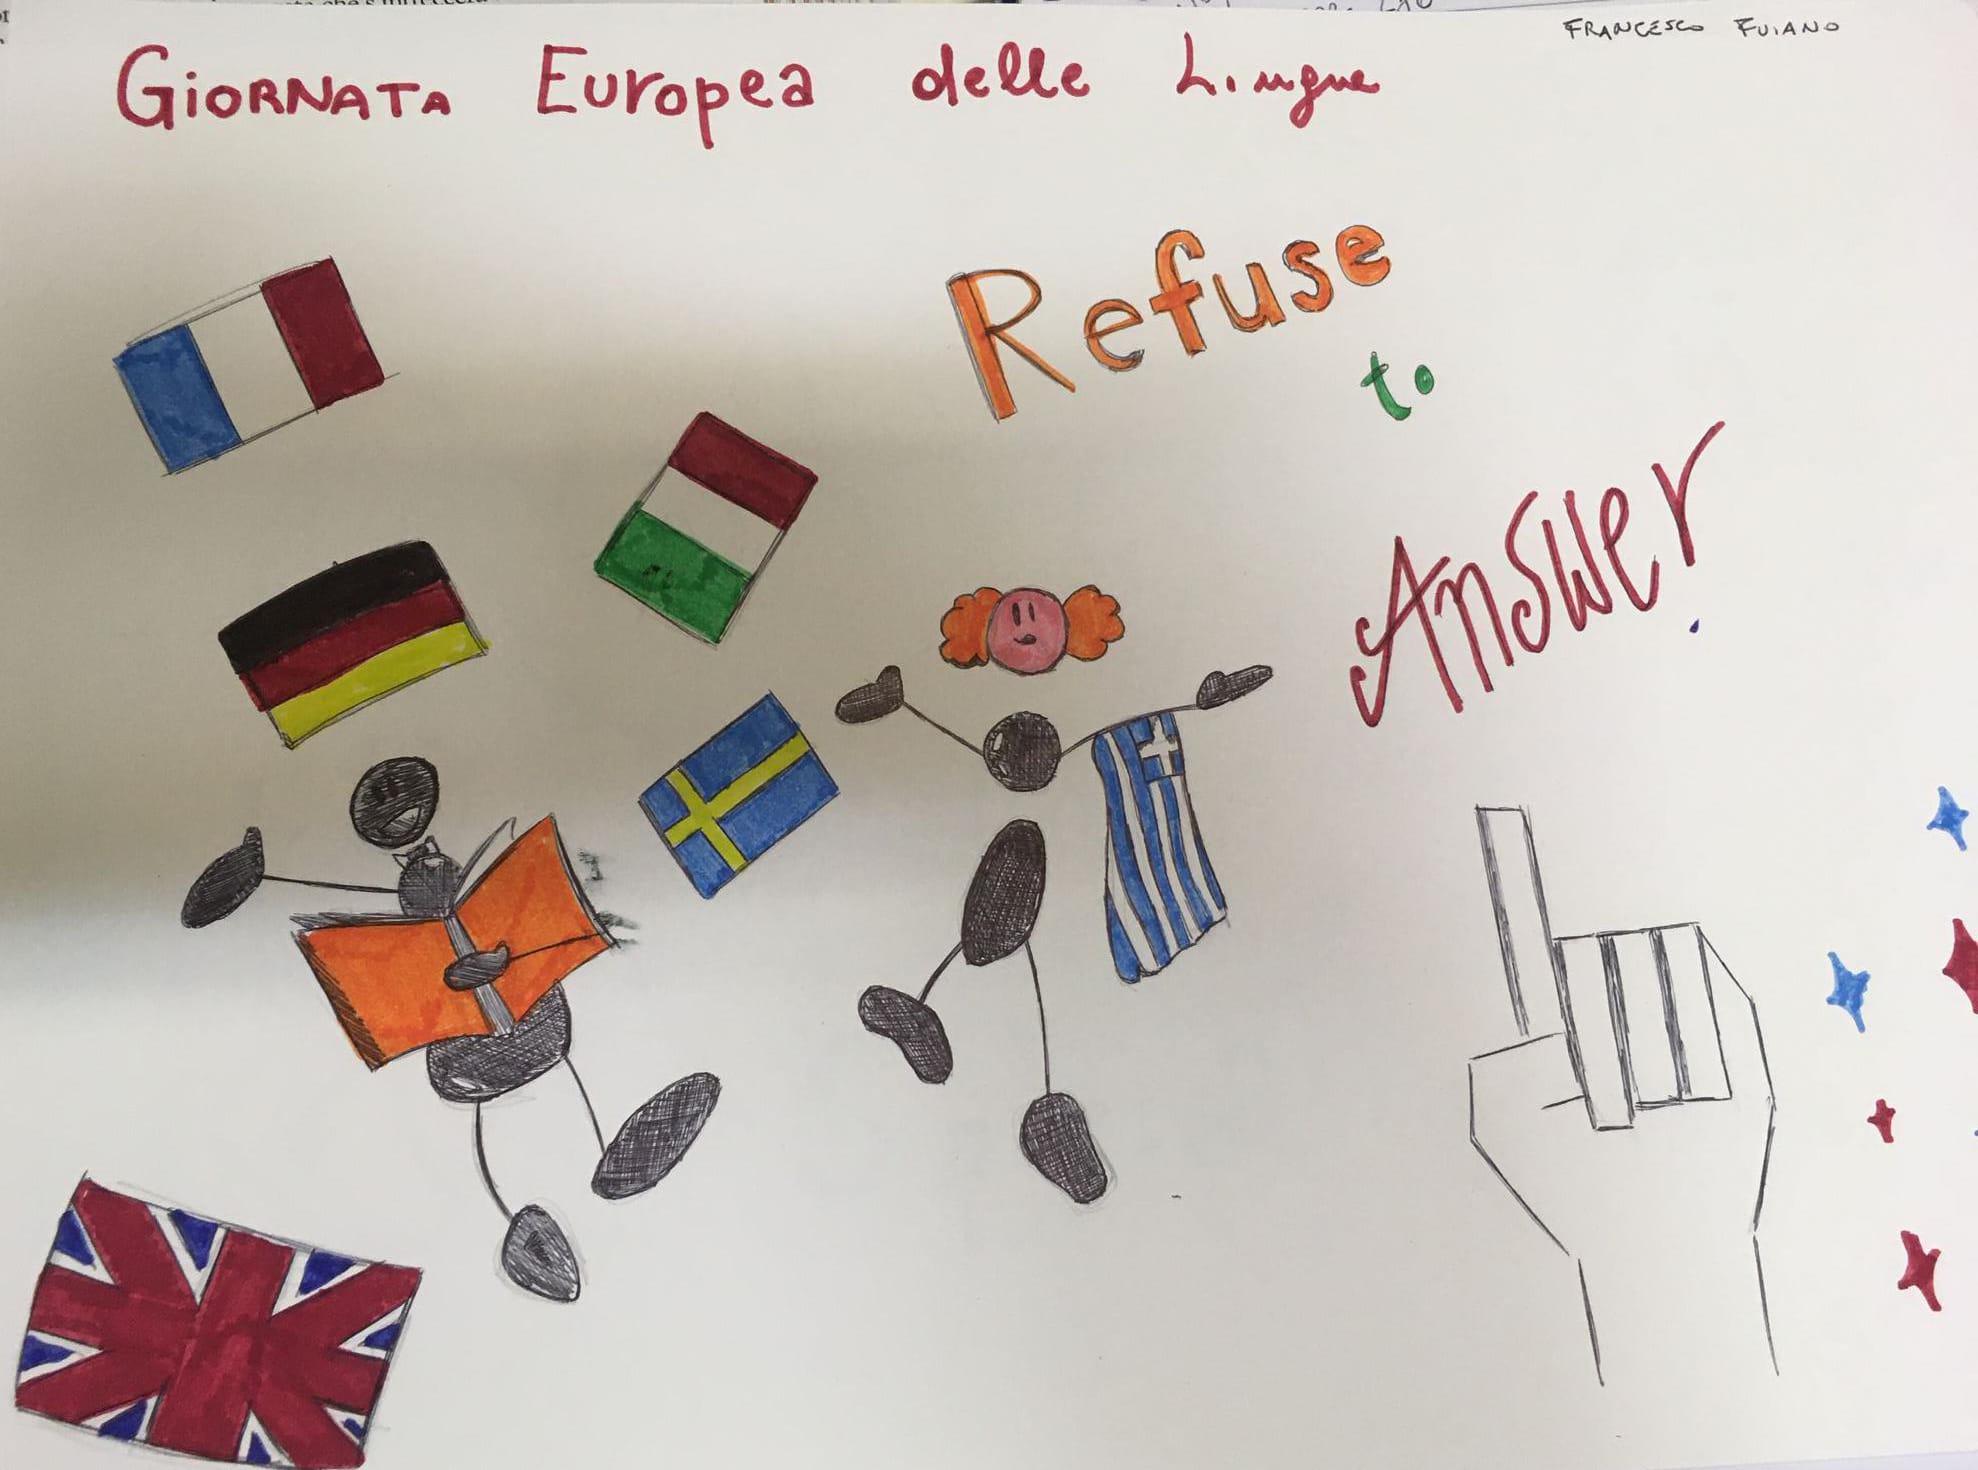 FRANCESCO FUIANO
GIORNATA Europea delle Lingue
Refuse
to
Answer